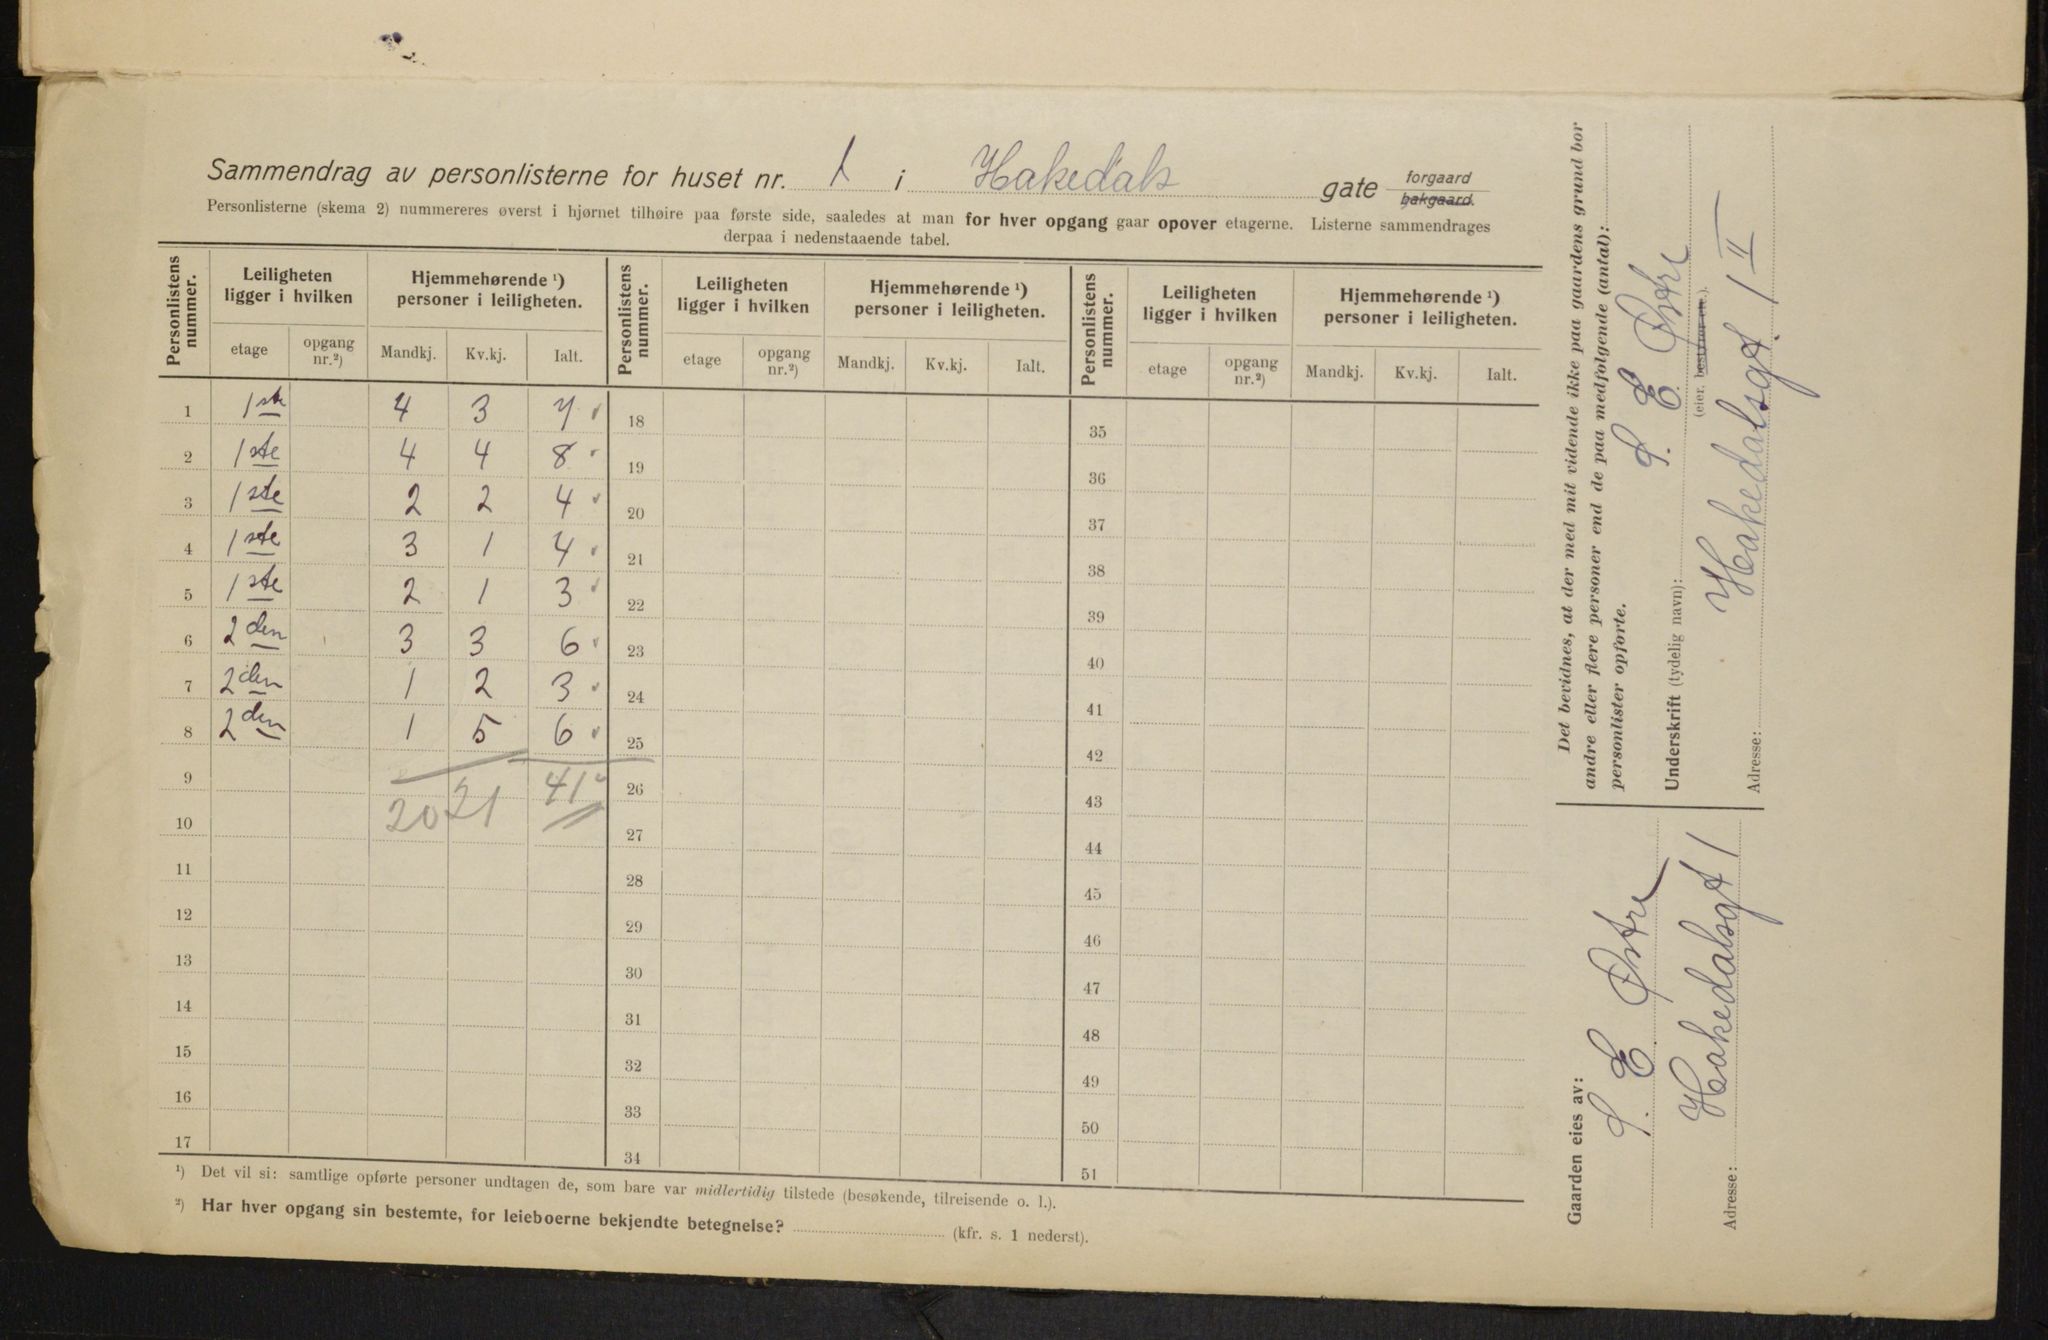 Sammendrag av personlisterne for huset nr. 1 i Hakedals gate forgaard
bakgaard.
Personlisterne (skema 2) nummereres øverst i hjørnet tilhøire paa første side, saaledes at man for hver opgang gaar opover etagerne. Listerne sammendrages
derpaa i nedenstaaende tabel.
Personlistens nummer. Leiligheten ligger i hvilken Hjemmehørende ¹) personer i leiligheten. Personlistens nummer. Leiligheten ligger i hvilken Hjemmehørende ¹) personer i leiligheten. Personlistens nummer. Leiligheten ligger i hvilken Hjemmehørende ¹) personer i leiligheten.
etage opgang nr.²) Mandkj. Kv.kj. Ialt. etage opgang nr.²) Mandkj. Kv.kj. Ialt. etage opgang nr.²) Mandkj. Kv.kj. Ialt.
1 1ste 4 3 7 18 35
2 1ste 4 4 8 19 36
3 1ste 2 2 4 20 37
4 1ste 3 1 4 21 38
5 1ste 2 1 3 22 39
6 2den 3 3 6 23 40
7 2den 1 2 3 24 41
8 2den 1 5 6 25 42
9 20 21 41 26 43
10 27 44
11 28 45
12 29 46
13 30 47
14 31 48
15 32 49
16 33 50
17 34 51
¹) Det vil si: samtlige opførte personer undtagen de, som bare var midlertidig tilstede (besøkende, tilreisende o. l.).
²) Har hver opgang sin bestemte, for leieboerne bekjendte betegnelse? (kfr. s. 1 nederst).
Det bevidnes, at der med mit vidende ikke paa gaardens grund bor
andre eller flere personer end de paa medfølgende (antal):
personlister opførte.
Underskrift (tydelig navn): S. E. Østre
(eier, bestyrer etc.).
Adresse: Hakedalsgt. 1 II
Gaarden eies av: S. E. Østre
Adresse: Hakedalsgt 1